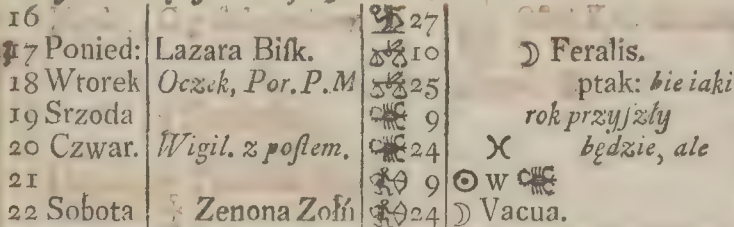 16 27
17 Ponied: Lazara Biſk. 10 ☽ Feralis.
18 Wtorek Oczek, Por. P.M 25 ptak: bie iaki
19 Srzoda 9 rok przyjzły
20 Czwar. Wigil. z poſtem. 24 ♓ będzie, ale
21 9 ☉ w
22 Sobota Zenona Zołń 24 ☽ Vacua.